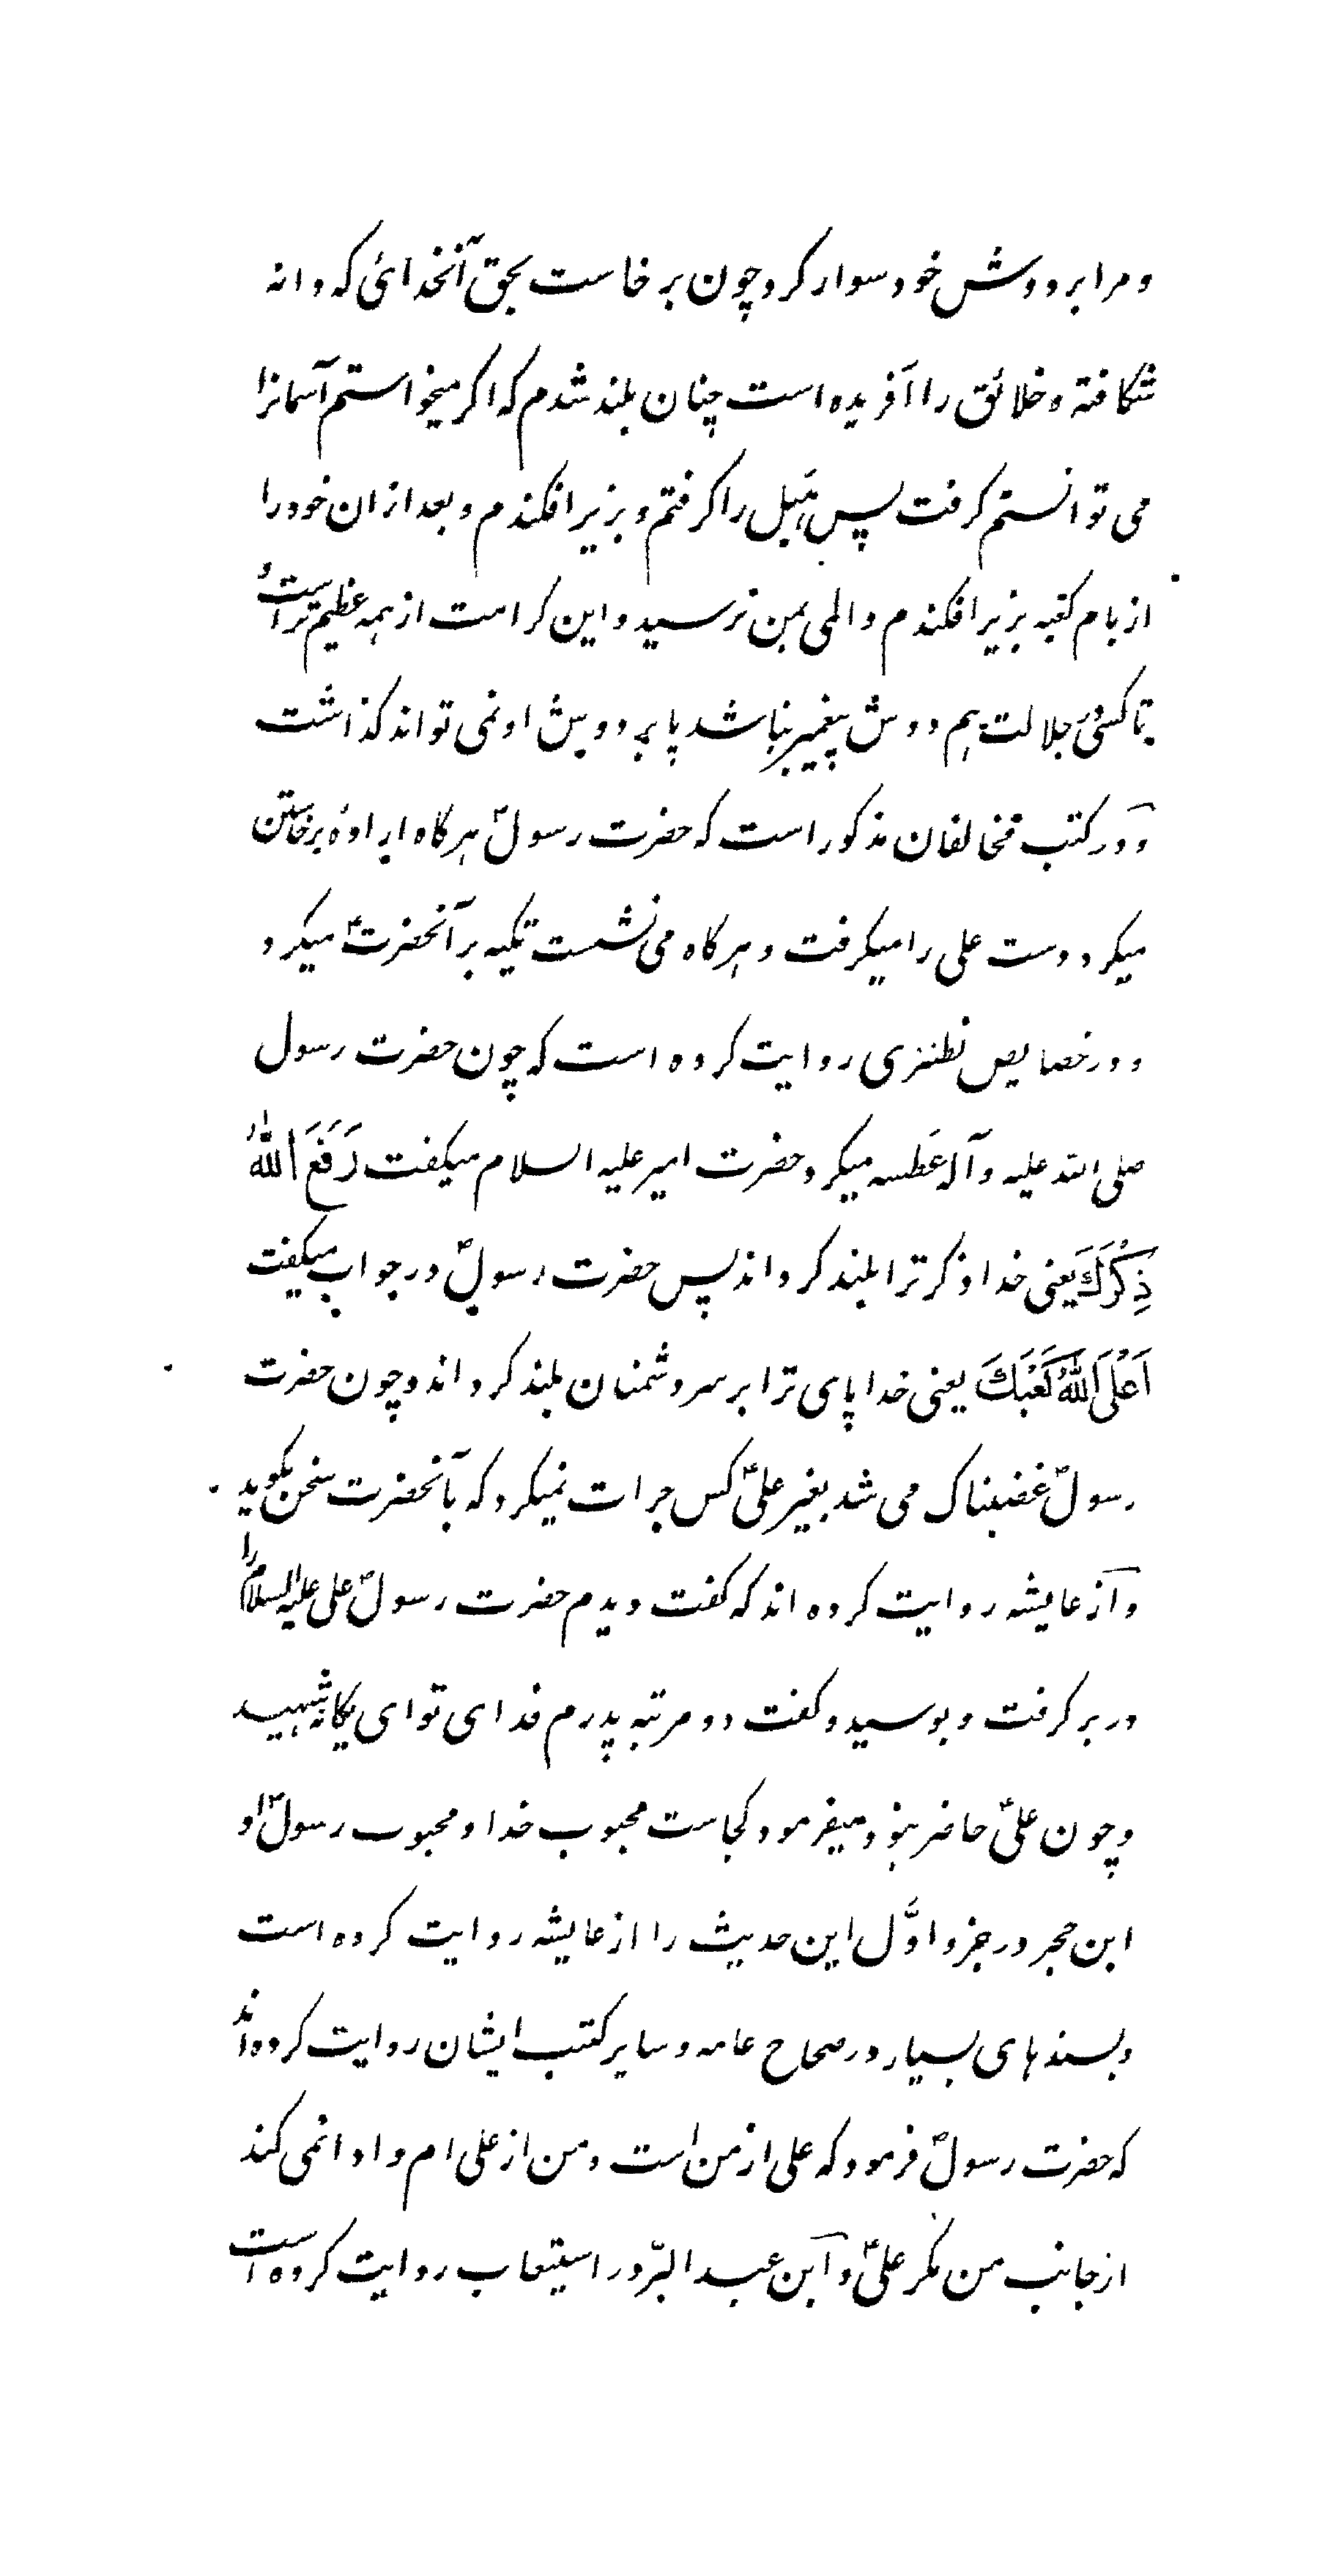 و مرا بر دوش خود سوار کرد چون برخاست بحق آنخدائی که دانه
شکافته و خلائق را آفریده است چنان بلند شدم که اکر میخواستم آسمانرا
می توانستم کرفت پس هبل را کرفتم و بزیر افکندم و بعد ازان خود را
از بام کعبه بزیر افکندم و المی بمن نرسید و این کرامت از همه عظیم تر است و
تا کسی در جلالت هم دوش پیغمبر نباشد پا بر دوش او نمی تواند کذاشت
و در کتب مخالفان مذکور است که حضرت رسولؐ هرکاه ارادهٔ برخاستن
میکرد دست علی را میکرفت و هرکاه می نشست تکیه بر آنحضرتؑ میکرد
و در خصایص نطنزی روایت کرده است که چون حضرت رسول
صلی الله علیه و آله عَطسه میکرد حضرت امیر علیه السلام میکفت رَفَعَ اللهُ
ذِکْرَكَ یعنی خدا ذکر ترا بلند کرداند پس حضرت رسولؐ در جواب میکفت
اَعْلَی اللهُ کَعْبَكَ یعنی خدا پای ترا بر سر دشمنان بلند کرداند و چون حضرت
رسولؐ غضبناک می شد بغیر علیؑ کس جرات نمیکرد که بآنحضرت سخن بکوید
و از عایشه روایت کرده اند که کفت دیدم حضرت رسولؐ علی علیه السلام را
در بر کرفت و بوسید و کفت دو مرتبه پدرم فدای تو ای یکانه شهید
و چون علیؑ حاضر نبود میفرمود کجاست محبوب خدا و محبوب رسولؐ او
ابن حجر در جزو اوَّل این حدیث را از عایشه روایت کرده است
و بسندهای بسیار در صحاح عامه و سایر کتب ایشان روایت کرده اند
که حضرت رسولؐ فرمود که علی از من است و من از علی ام و ادا نمی کند
از جانب من مکر علیؑ و ابن عبد البرّ در استیعاب روایت کرده است